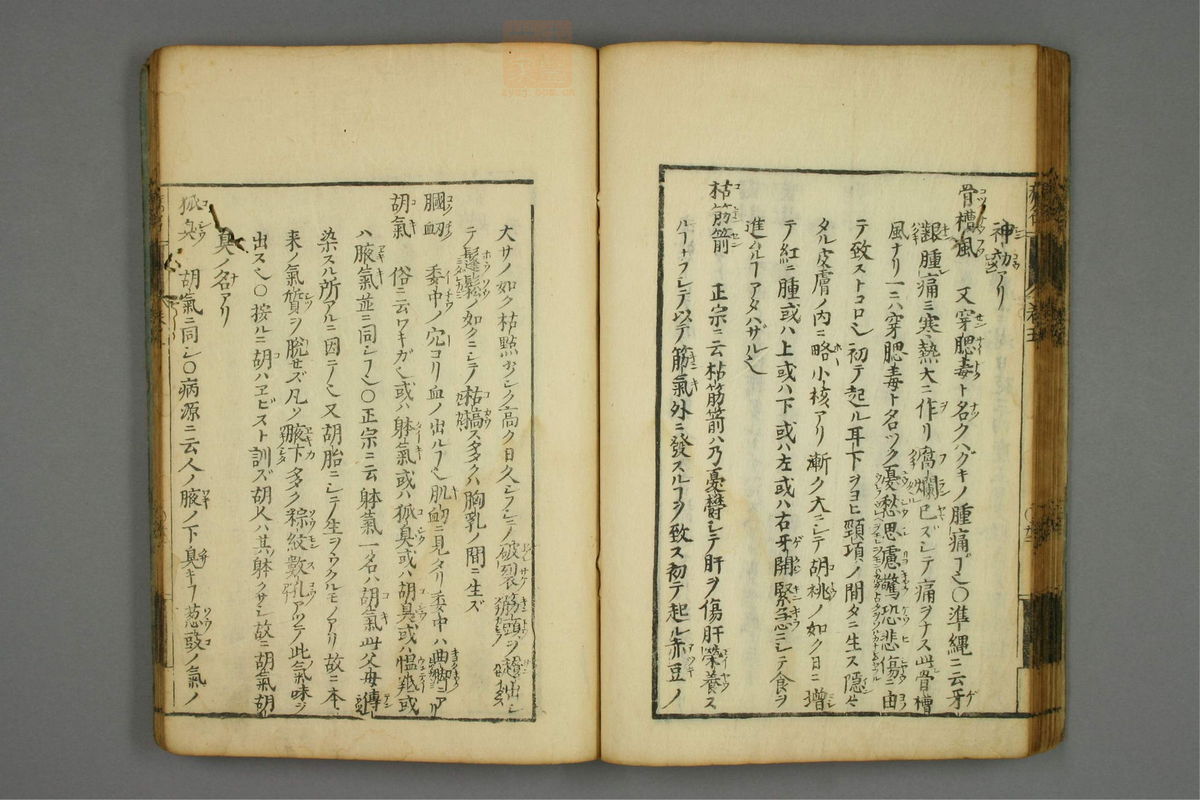 神効アリ
骨槽風 又穿腮毒ト名クハグキノ腫痛ヿ也〇準縄ニ云牙
齦腫痛ミ寒熱大ニ作リ腐爛已ズシテ痛ヲナス此骨槽
風ナリ一ニハ穿腮毒ト名ツク憂愁思慮驚恐悲傷ニ由
テ致ストコロ也初テ起ル耳下ヲヨヒ頸項ノ間タニ生ス隠々
タル皮膚ノ内ニ略小核アリ漸ク大ニシテ胡桃ノ如ク日ニ増
テ紅ニ腫或ハ上或ハ下或ハ左或ハ右牙開緊急ニシテ食ヲ
進ルヿアタハザル也
枯筋箭 正宗ニ云枯筋箭ハ乃憂鬱シテ肝ヲ傷肝榮養ス
ルヿナフシテ以テ筋氣外ニ發スルヿヲ致ス初テ起ル赤豆ノ
大サノ如ク枯點シク高ク日久シフシテ破裂筋頭ヲ出シ
テ鬆ノ如クニシテ枯槁ス多クハ胸乳ノ間ニ生ズ
膕䘐 委中ノ穴ヨリ血ノ出ルヿ也肌䘐ニ見タリ委中ハ曲䐐ニアリ
胡氣 俗ニ云ワキガ也或ハ躰氣或ハ狐臭或ハ胡臭或ハ慍羝或
ハ腋氣並ニ同シヿ也〇正宗ニ云躰氣一名ハ胡氣此父母傳
染スル所アルニ因テ也又胡胎ニシテ生ヲウクルモノアリ故ニ本
来ノ氣質ヲ脱セズ凡ソ腋下多ク棕紋數孔アツテ此氣味ヲ
出ス也〇按ルニ胡ハヱビスト訓ズ胡人ハ其躰クサシ故ニ胡氣胡
臭ノ名アリ
狐臭 胡氣ニ同シ〇病源ニ云人ノ腋ノ下臭キヿ葱豉ノ氣ノ